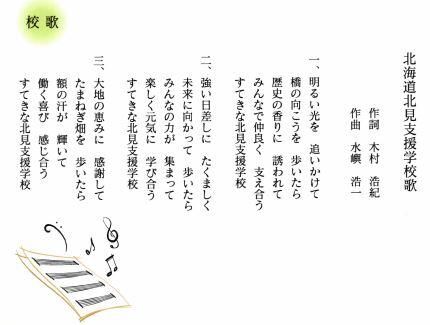 校歌
北海道北見支援学校歌
作詞 木村 浩紀
作曲 水嶼 浩一
一、明るい光を 追いかけて
橋の向こうを 歩いたら
歴史の香りに 誘われて
みんなで仲良く 支え合う
すてきな北見支援学校
二、強い日差しに たくましく
未来に向かって 歩いたら
みんなの力が 集まって
楽しく元気に 学び合う
すてきな北見支援学校
三、大地の恵みに 感謝して
たまねぎ畑を 歩いたら
額の汗が 輝いて
働く喜び 感じ合う
すてきな北見支援学校